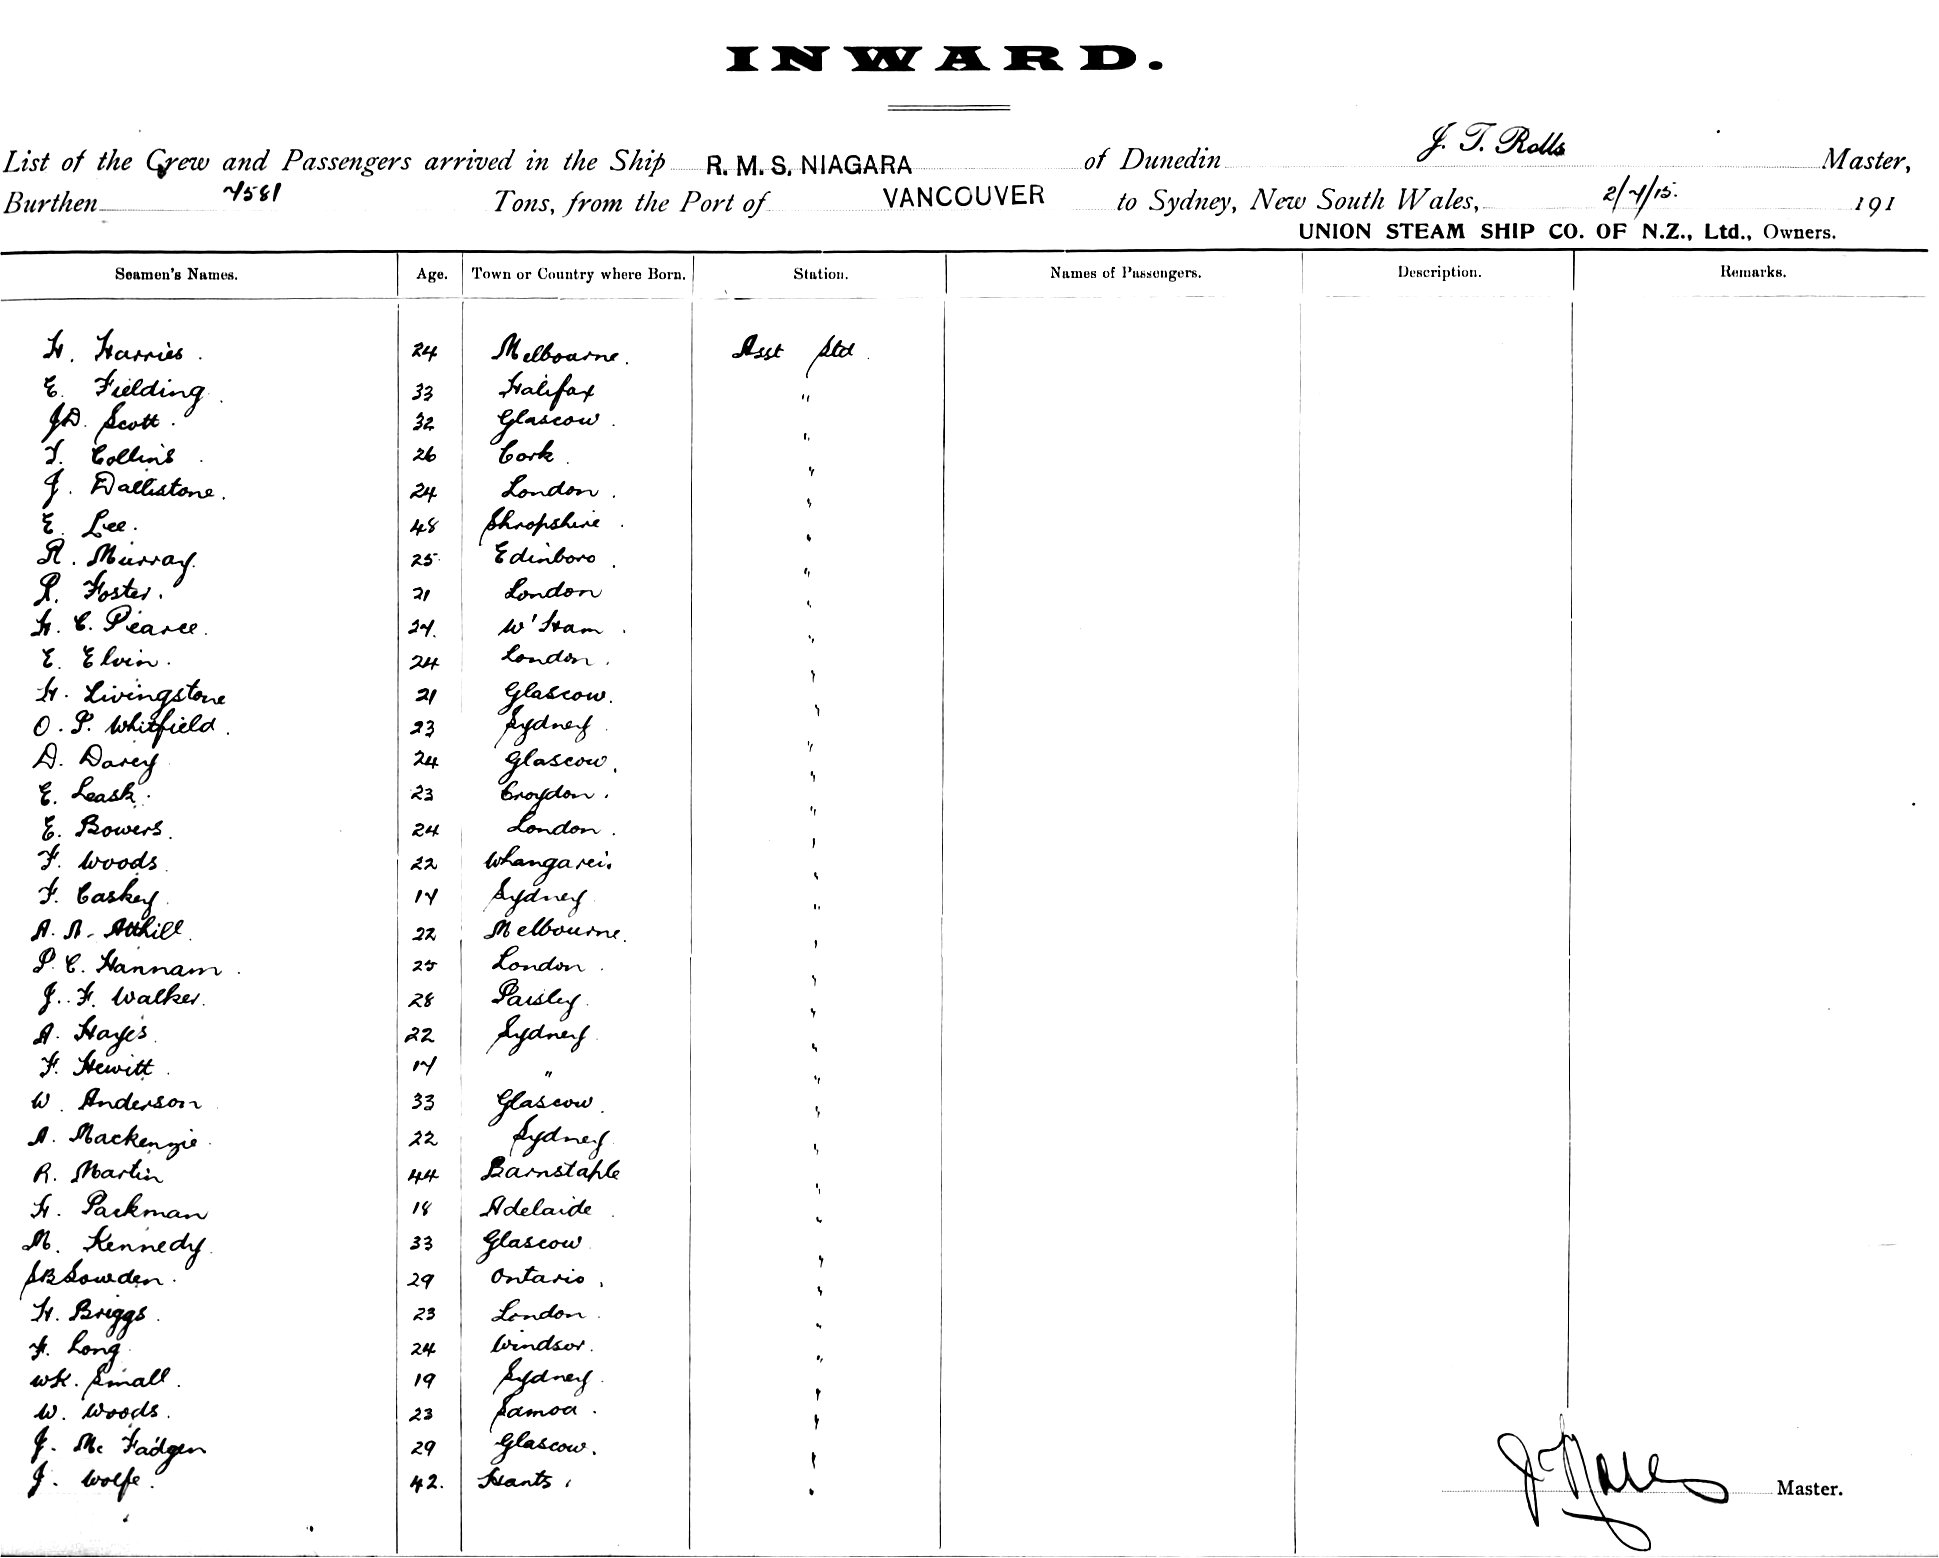 INWARD.
List of the Crew and Passengers arrived in the Ship R. M. S. NIAGARA of Dunedin J. T. Rolls Master,
Burthen 7581 Tons, from the Port of VANCOUVER to Sydney, New South Wales, 2/7/15. 191
UNION STEAM SHIP CO. OF N.Z., Ltd., Owners.
Seamen's Names. Age. Town or Country where Born. Station. Names of Passengers. Description. Remarks.
H. Harries. 24 Melbourne. Asst Std
E. Fielding 33 Halifax "
J.D. Scott. 32 Glascow. "
T. Collins 26 Cork. "
J. Dallistone. 24 London. "
E. Lee. 48 Shropshire. "
R. Murray. 25 Edinboro. "
R. Foster. 21 London "
H. C. Pearce. 27. W'Ham. "
E. Elvin. 24 London. "
H. Livingstone 21 Glascow. "
O. P. Whitfield. 23 Sydney. "
D. Darcy 24 Glascow. "
E. Leask. 23 Croydon. "
E. Bowers. 24 London. "
F. Woods. 22 Whangarei. "
F. Caskey. 17 Sydney "
A. A. Atthill. 22 Melbourne. "
P. C. Hannam. 25 London. "
J. F. Walker. 28 Paisley. "
A. Hayes. 22 Sydney. "
F. Hewitt. 17 " "
W. Anderson 33 Glascow. "
A. Mackenzie. 22 Sydney. "
R. Martin 44 Barnstaple "
H. Packman 18 Adelaide. "
M. Kennedy. 33 Glascow "
S B Sowden. 29 Ontario. "
H. Briggs. 23 London. "
F. Long. 24 Windsor. "
WH. Small. 19 Sydney. "
W. Woods. 23 Samoa. "
J. Mc Fadgen 29 Glascow. "
J. Wolfe. 42. Hants. "
J T Rolls Master.